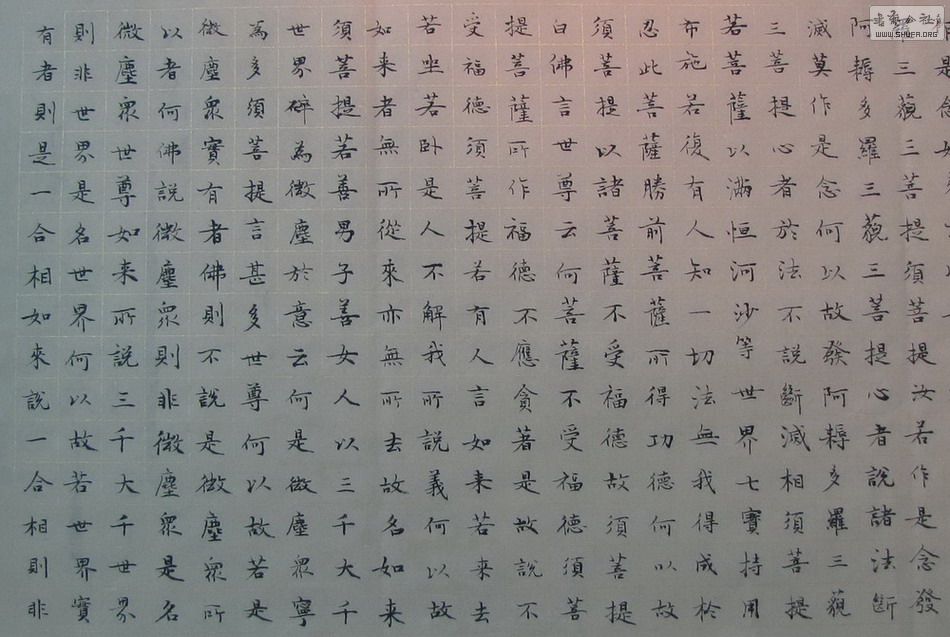 是念
三藐三菩提須菩提汝若作是念發
阿耨多羅三藐三菩提心者說諸法斷
滅莫作是念何以故發阿耨多羅三藐
三菩提心者於法不說斷滅相須菩提
若菩薩以滿恒河沙等世界七寶持用
布施若復有人知一切法無我得成於
忍此菩薩勝前菩薩所得功德何以故
須菩提以諸菩薩不受福德故須菩提
白佛言世尊云何菩薩不受福德須菩
提菩薩所作福德不應貪著是故說不
受福德須菩提若有人言如来若来去
若坐若卧是人不解我所說義何以故
如来者無所從來亦無所去故名如来
須菩提若善男子善女人以三千大千
世界碎為微塵於意云何是微塵衆寧
為多須菩提言甚多世尊何以故若是
微塵衆實有者佛則不說是微塵衆所
以者何佛說微塵衆則非微塵衆是名
微塵衆世尊如来所說三千大千世界
則非世界是名世界何以故若世界實
有者則是一合相如來說一合相則非